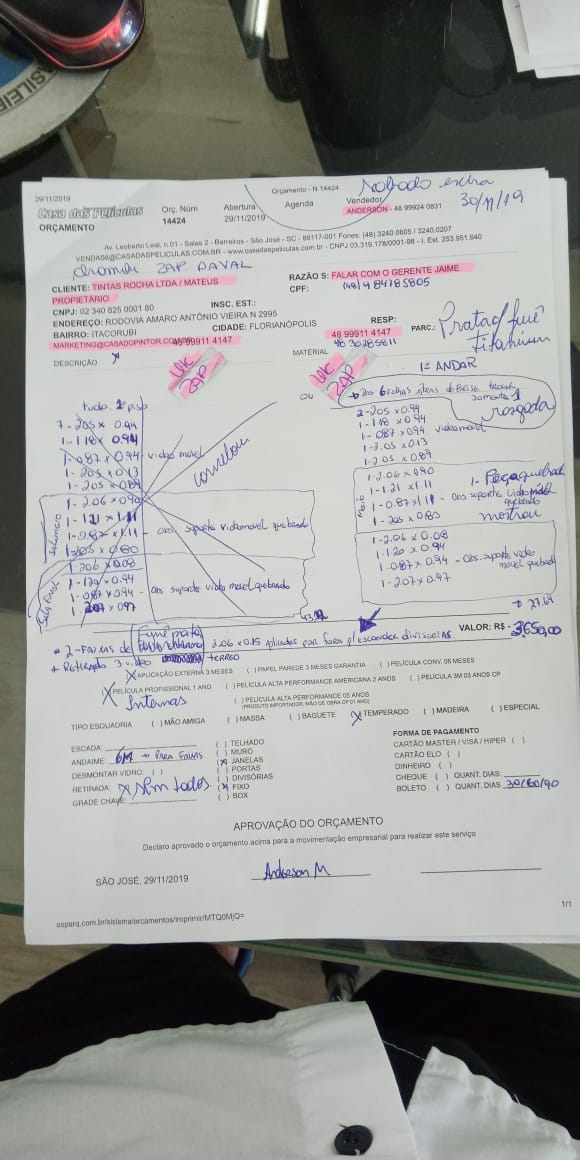 29/11/2019
Orçamento - N 14424
Sabado extra
30/11/19
Casa das Películas
ORÇAMENTO
Orç. Núm
14424
Abertura
29/11/2019
Agenda
Vendedor
ANDERSON - 48 99924 0831
Av. Leoberto Leal, n 01 - Salas 2 - Barreiros - São José - SC - 88117-001 Fones: (48) 3240.0605 / 3240.0207
VENDAS6@CASADASPELICULAS.COM.BR - www.casadaspeliculas.com.br - CNPJ 03.319.178/0001-98 - I. Est. 253.951.640
ZAP
CLIENTE: TINTAS ROCHA LTDA / MATEUS
PROPIETÁRIO
RAZÃO S: FALAR COM O GERENTE JAIME
CPF: (48) 984785805
CNPJ: 02 340 625 0001 80
INSC. EST.:
ENDEREÇO: RODOVIA AMARO ANTÔNIO VIEIRA N 2995
BAIRRO: ITACORUBI
CIDADE: FLORIANÓPOLIS
RESP:
48 99911 4147
PARC.:
Titanium
48 99911 4147
DESCRIÇÃO
MATERIAL
ZAP
ou
ZAP
1º ANDAR
somente 1
rasgada
7-205 x 0.94
1-1.18 x 0.94
1-087 x 0.94 - vidro movel
1-205 x 0.13
1-205 x 0.89
1-2.06 x 0.90
1-1.21 x 1.11
1-0.87 x 1.11 - Obs suporte vidro movel quebrado
1-205 x 0.80
1-206 x 0.08
1-120 x 0.94
1-087 x 0.94 - Obs suporte vidro movel quebrado
1-207 x 0.97
cancelou
2-205 x 0.94
1-1.18 x 0.94
1-087 x 0.94 vidro movel
1-2.05 x 0.13
1-205 x 0.89
1-2.06 x 0.90
1-1.21 x 1.11
1-0.87 x 1.11 - Obs suporte vidro móvel quebrado
1-205 x 0.80
1-Peça quebrada
mostrou
1-2.06 x 0.08
1-1.20 x 0.94
1-0.87 x 0.94 - Obs. suporte vidro movel quebrado
1-207 x 0.97
27.69
VALOR: R$ - 3650,00
2-Faixas de Fumê prata 2.06 x 0.15 aplicadas por fora p/ esconder divisorias
+ Retirada 3 vidros terreo
X APLICAÇÃO EXTERNA 3 MESES ( ) PAPEL PAREDE 3 MESES GARANTIA ( ) PELÍCULA CONV. 06 MESES
X PELÍCULA PROFISSIONAL 1 ANO ( ) PELÍCULA ALTA PERFORMANCE AMERICANA 2 ANOS ( ) PELÍCULA 3M 03 ANOS CP
Internas
( ) PELÍCULA ALTA PERFORMANCE 05 ANOS
(PRODUTO IMPORTADOR, MÃO DE OBRA CP 01 ANO)
TIPO ESQUADRIA ( ) MÃO AMIGA ( ) MASSA ( ) BAGUETE (X) TEMPERADO ( ) MADEIRA ( ) ESPECIAL
ESCADA:
ANDAIME: 6M - Para Faixas
DESMONTAR VIDRO: ( )
RETIRADA: X Sim todos
GRADE CHAVE:
( ) TELHADO
( ) MURO
(X) JANELAS
( ) PORTAS
( ) DIVISÓRIAS
(X) FIXO
( ) BOX
FORMA DE PAGAMENTO
CARTÃO MASTER / VISA / HIPER ( )
CARTÃO ELO ( )
DINHEIRO ( )
CHEQUE ( ) QUANT. DIAS:
BOLETO ( ) QUANT. DIAS 30/60/90
APROVAÇÃO DO ORÇAMENTO
Declaro aprovado o orçamento acima para a movimentação empresarial para realizar este serviço
SÃO JOSÉ, 29/11/2019
Anderson M
1/1
osparq.com.br/sistema/orcamentos/imprimir/MTQ0MjQ=